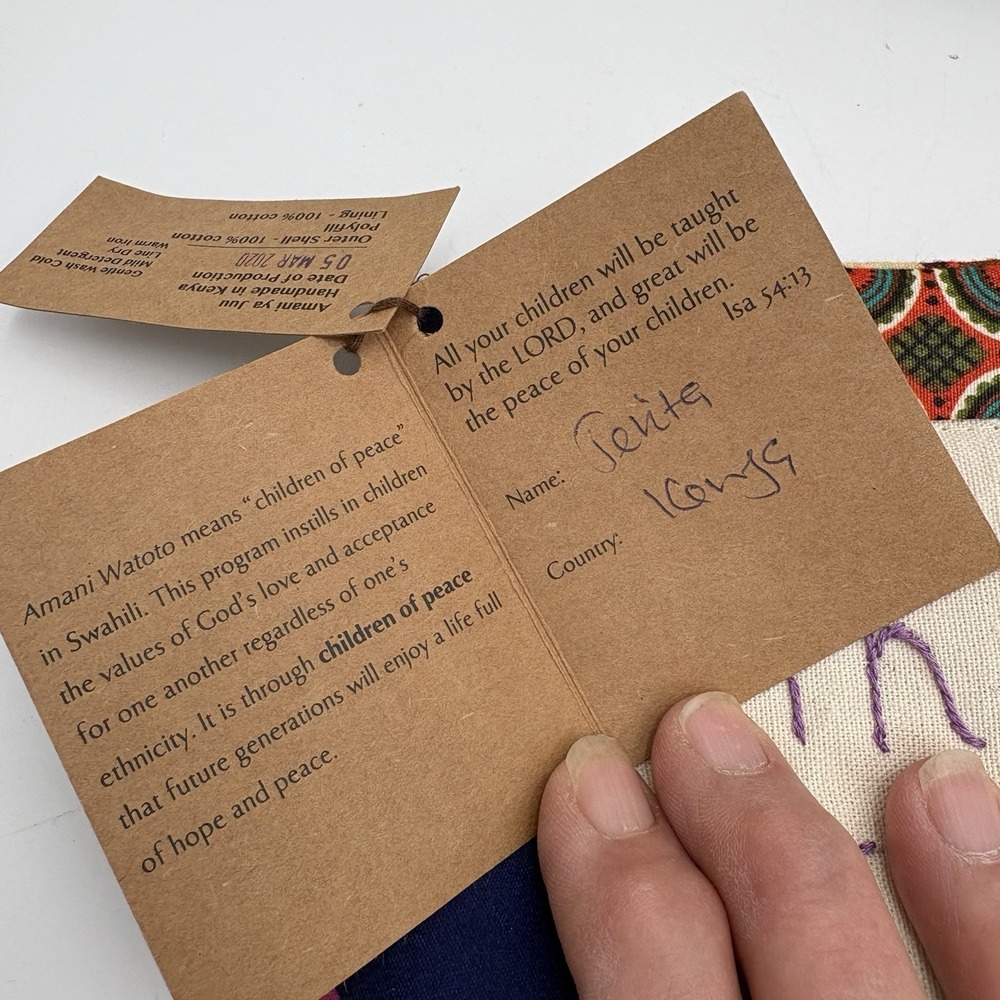 Amani ya Juu
Handmade in Kenya
Date of Production
05 MAR 2020
Outer Shell - 100% cotton
Polyfill
Lining - 100% cotton
Gentle Wash Cold
Mild Detergent
Line Dry
Warm Iron
Amani Watoto means “children of peace”
in Swahili. This program instills in children
the values of God’s love and acceptance
for one another regardless of one’s
ethnicity. It is through children of peace
that future generations will enjoy a life full
of hope and peace.
All your children will be taught
by the LORD, and great will be
the peace of your children.
Isa 54:13
Name: Jenita
Country: Kenya